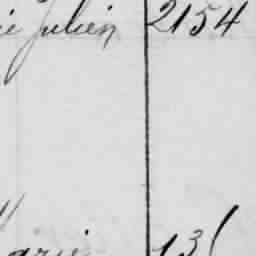 ie Julien 2154
arie 13